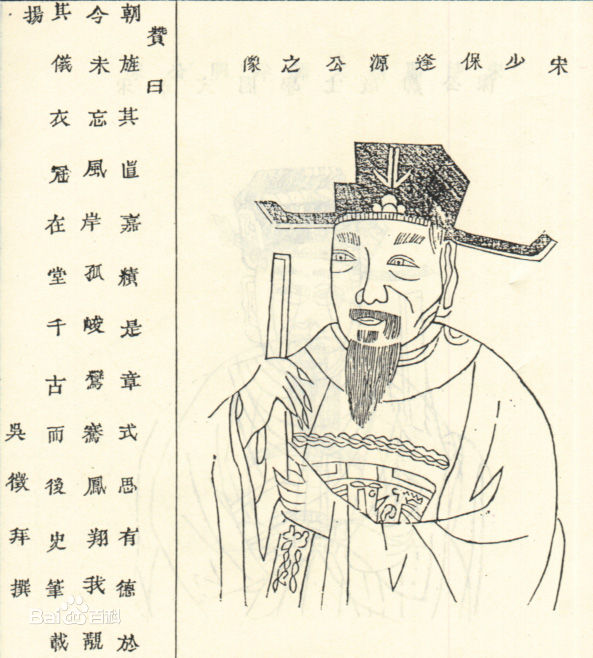 宋少保逢源公之像
贊曰
朝旌其直嘉績是章式思有德於
今未忘風岸孤峻鸞騫鳳翔我
其儀衣冠在堂千古而後史筆載
揚
吳徵拜撰
Bai百科